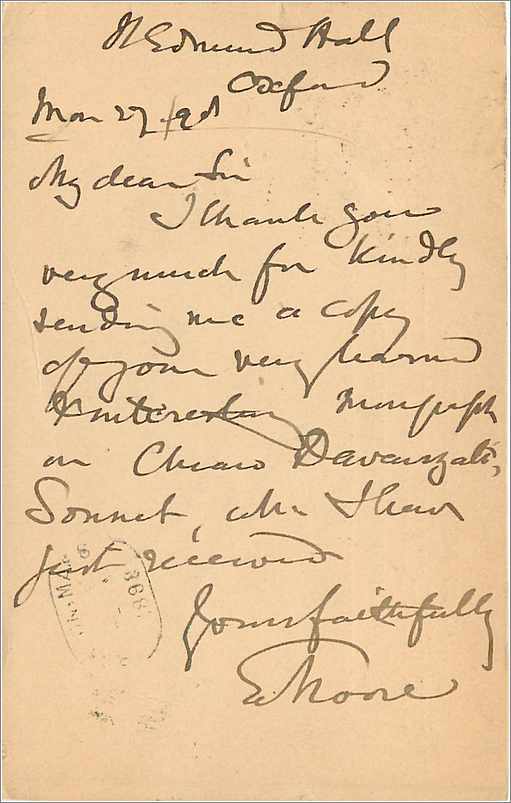 St Edmund Hall
Oxford
Mar 27. /98
My dear Sir
I thank you
very much for kindly
sending me a copy
of your very learned
& interesting Monograph
on Chiaro Davanzati's
Sonnet, wh. I have
just received
Yours faithfully
E Moore